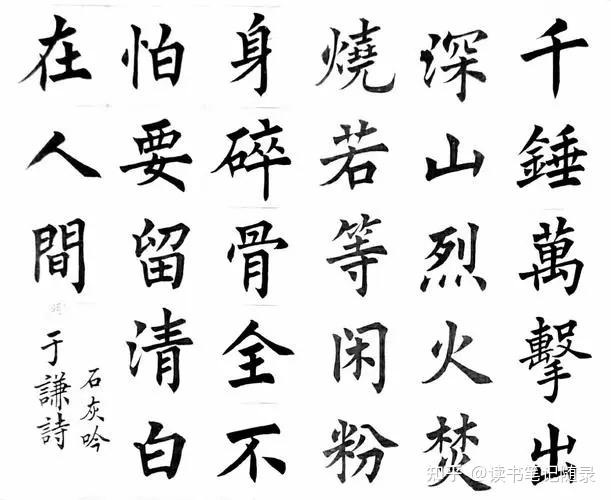 千錘萬擊出
深山烈火焚
燒若等閑粉
身碎骨全不
怕要留清白
在人間
石灰吟
于謙詩
知乎 @读书笔记随录